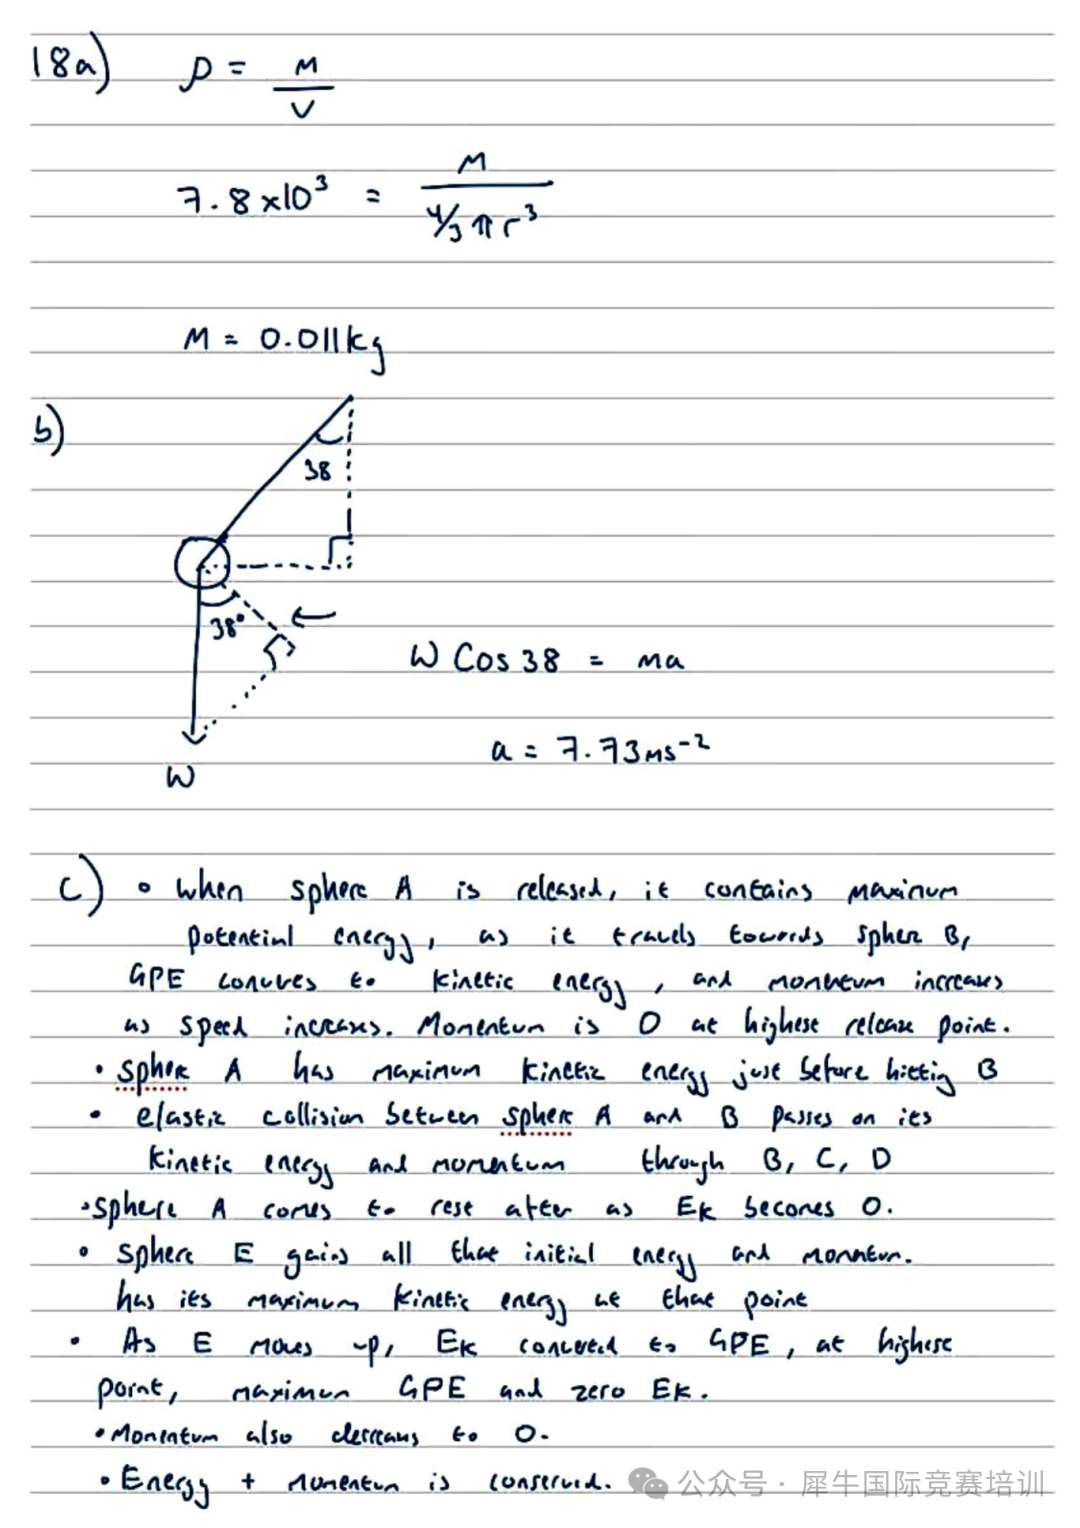 18a) ρ = M / V
7.8 ×10³ = M / 4/3 π r³
M = 0.011kg
b)
38
38°
W Cos 38 = ma
a = 7.73ms⁻²
W
c) • When sphere A is released, it contains maximum
potential energy, as it travels towards sphere B,
GPE converes to kinetic energy, and momentum increases
as speed increases. Momentum is 0 at highest release point.
• sphere A has maximum kinetic energy just before hitting B
• elastic collision between sphere A and B passes on its
kinetic energy and momentum through B, C, D
• sphere A comes to rest after as Ek becomes 0.
• sphere E gains all that initial energy and momentum.
has its maximum kinetic energy at that point
• As E moves up, Ek converted to GPE, at highest
point, maximum GPE and zero Ek.
• Momentum also decreases to 0.
• Energy + momentum is conserved.
公众号 · 犀牛国际竞赛培训